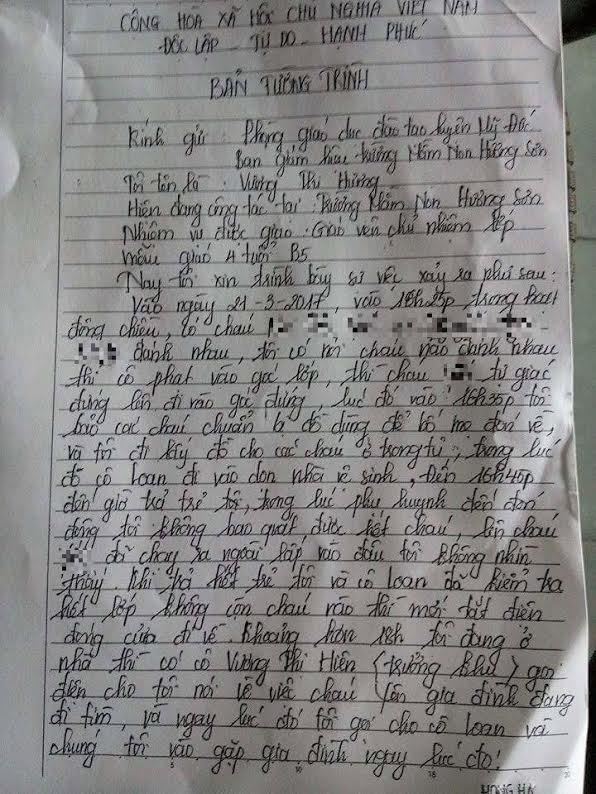 CỘNG HÒA XÃ HỘI CHỦ NGHĨA VIỆT NAM
ĐỘC LẬP - TỰ DO - HẠNH PHÚC
BẢN TƯỜNG TRÌNH
Kính gửi: Phòng giáo dục đào tạo huyện Mỹ Đức
Ban giám hiệu trường Mầm Non Hương Sơn
Tôi tên là: Vương Thị Hương
Hiện đang công tác tại: Trường Mầm Non Hương Sơn
Nhiệm vụ được giao: Giáo viên chủ nhiệm lớp
mẫu giáo 4 tuổi B5
Nay tôi xin trình bày sự việc xảy ra như sau:
Vào ngày 21-3-2017, vào 16h25p trong hoạt
động chiều, có cháu
đánh nhau, tôi có nói cháu nào đánh nhau
thì cô phạt vào góc lớp, thì cháu tự giác
đứng lên đi vào góc đứng, lúc đó vào 16h35p tôi
bảo các cháu chuẩn bị đồ dùng để bố mẹ đón về,
và tôi đi lấy đồ cho các cháu ở trong tủ, trong lúc
đó cô Loan đi vào dọn nhà vệ sinh, Đến 16h45p
đến giờ trả trẻ tôi, trong lúc phụ huynh đến đón
đông tôi không bao quát được hết cháu, lên cháu
đã chạy ra ngoài lấp vào đâu tôi không nhìn
thấy, khi trả hết trẻ tôi và cô Loan đã kiểm tra
hết lớp không còn cháu nào thì mới tắt điện
đóng cửa đi về. Khoảng hơn 18h tôi đang ở
nhà thì có cô Vương Thị Hiên (trưởng khu) gọi
điện cho tôi nói về việc cháu gia đình đang
đi tìm, và ngay lúc đó tôi gọi cho cô Loan và
chúng tôi vào gặp gia đình ngay lúc đó!
HONG HA